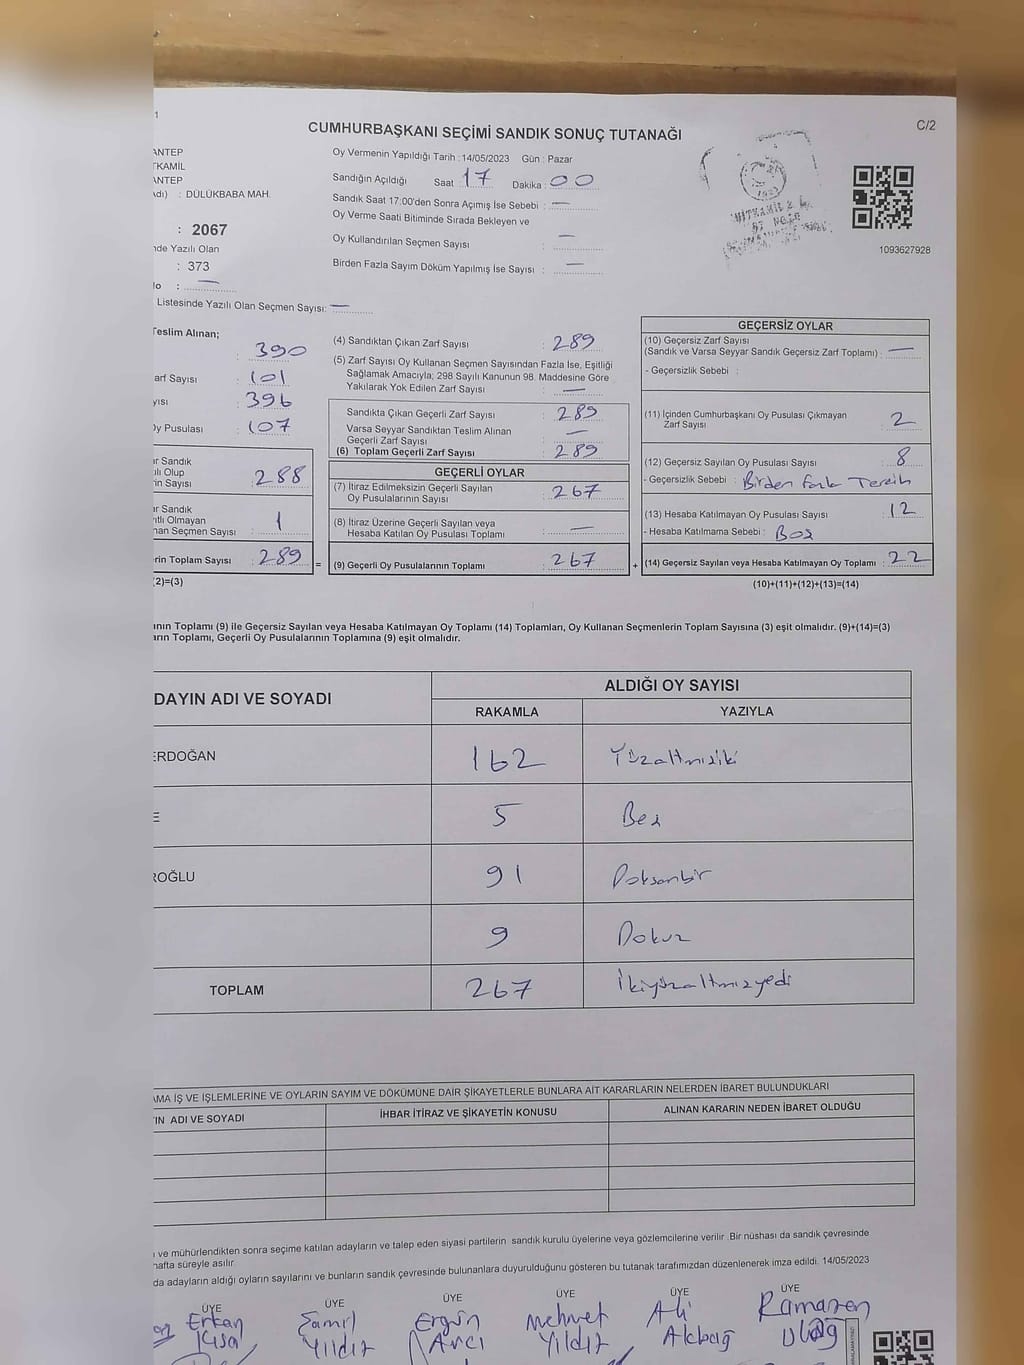 1
C/2
CUMHURBAŞKANI SEÇİMİ SANDIK SONUÇ TUTANAĞI
ANTEP
TKAMİL
ANTEP
Adı) : DÜLÜKBABA MAH.
: 2067
nde Yazılı Olan
: 373
No : —
Listesinde Yazılı Olan Seçmen Sayısı: —
Oy Vermenin Yapıldığı Tarih : 14/05/2023 Gün : Pazar
Sandığın Açıldığı Saat 17 Dakika : 00
Sandık Saat 17:00'den Sonra Açımış İse Sebebi : —
Oy Verme Saati Bitiminde Sırada Bekleyen ve
Oy Kullandırılan Seçmen Sayısı : —
Birden Fazla Sayım Döküm Yapılmış İse Sayısı : —
1093627928
Teslim Alınan;
: 390
arf Sayısı : 101
yısı : 396
Oy Pusulası : 107
ır Sandık
ılı Olup
ın Sayısı : 288
ır Sandık
tlı Olmayan
nan Seçmen Sayısı : 1
rin Toplam Sayısı : 289 =
2)=(3)
(4) Sandıktan Çıkan Zarf Sayısı : 289
(5) Zarf Sayısı Oy Kullanan Seçmen Sayısından Fazla İse, Eşitliği
Sağlamak Amacıyla; 298 Sayılı Kanunun 98. Maddesine Göre
Yakılarak Yok Edilen Zarf Sayısı : —
Sandıkta Çıkan Geçerli Zarf Sayısı : 289
Varsa Seyyar Sandıktan Teslim Alınan
Geçerli Zarf Sayısı : —
(6) Toplam Geçerli Zarf Sayısı : 289
GEÇERLİ OYLAR
(7) İtiraz Edilmeksizin Geçerli Sayılan
Oy Pusulalarının Sayısı : 267
(8) İtiraz Üzerine Geçerli Sayılan veya
Hesaba Katılan Oy Pusulası Toplamı : —
(9) Geçerli Oy Pusulalarının Toplamı : 267 +
GEÇERSİZ OYLAR
(10) Geçersiz Zarf Sayısı
(Sandık ve Varsa Seyyar Sandık Geçersiz Zarf Toplamı) : —
- Geçersizlik Sebebi :
(11) İçinden Cumhurbaşkanı Oy Pusulası Çıkmayan
Zarf Sayısı : 2
(12) Geçersiz Sayılan Oy Pusulası Sayısı : 8
- Geçersizlik Sebebi : Birden fazla Tercih
(13) Hesaba Katılmayan Oy Pusulası Sayısı : 12
- Hesaba Katılmama Sebebi : Boş
(14) Geçersiz Sayılan veya Hesaba Katılmayan Oy Toplamı : 22
(10)+(11)+(12)+(13)=(14)
ının Toplamı (9) ile Geçersiz Sayılan veya Hesaba Katılmayan Oy Toplamı (14) Toplamları, Oy Kullanan Seçmenlerin Toplam Sayısına (3) eşit olmalıdır. (9)+(14)=(3)
arın Toplamı, Geçerli Oy Pusulalarının Toplamına (9) eşit olmalıdır.
DAYIN ADI VE SOYADI
ALDIĞI OY SAYISI
RAKAMLA YAZIYLA
ERDOĞAN 162 Yüzaltmışiki
E 5 Beş
ROĞLU 91 Doksanbir
9 Dokuz
TOPLAM 267 İkiyüzaltmışyedi
AMA İŞ VE İŞLEMLERİNE VE OYLARIN SAYIM VE DÖKÜMÜNE DAİR ŞİKAYETLERLE BUNLARA AİT KARARLARIN NELERDEN İBARET BULUNDUKLARI
'IN ADI VE SOYADI İHBAR İTİRAZ VE ŞİKAYETİN KONUSU ALINAN KARARIN NEDEN İBARET OLDUĞU
ı ve mühürlendikten sonra seçime katılan adayların ve talep eden siyasi partilerin sandık kurulu üyelerine veya gözlemcilerine verilir .Bir nüshası da sandık çevresinde
hafta süreyle asılır.
da adayların aldığı oyların sayılarını ve bunların sandık çevresinde bulunanlara duyurulduğunu gösteren bu tutanak tarafımızdan düzenlenerek imza edildi. 14/05/2023
ÜYE ÜYE ÜYE ÜYE ÜYE ÜYE
Erkan Şamil Ergün Mehmet Ali Ramazan
Kısal Yıldız Avcı Yıldız Akbağ